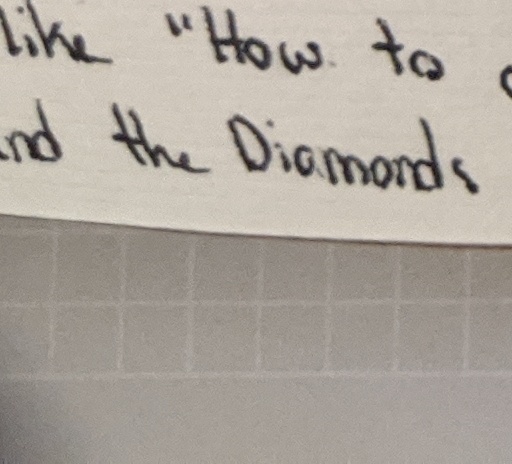 like "How to
and the Diamonds